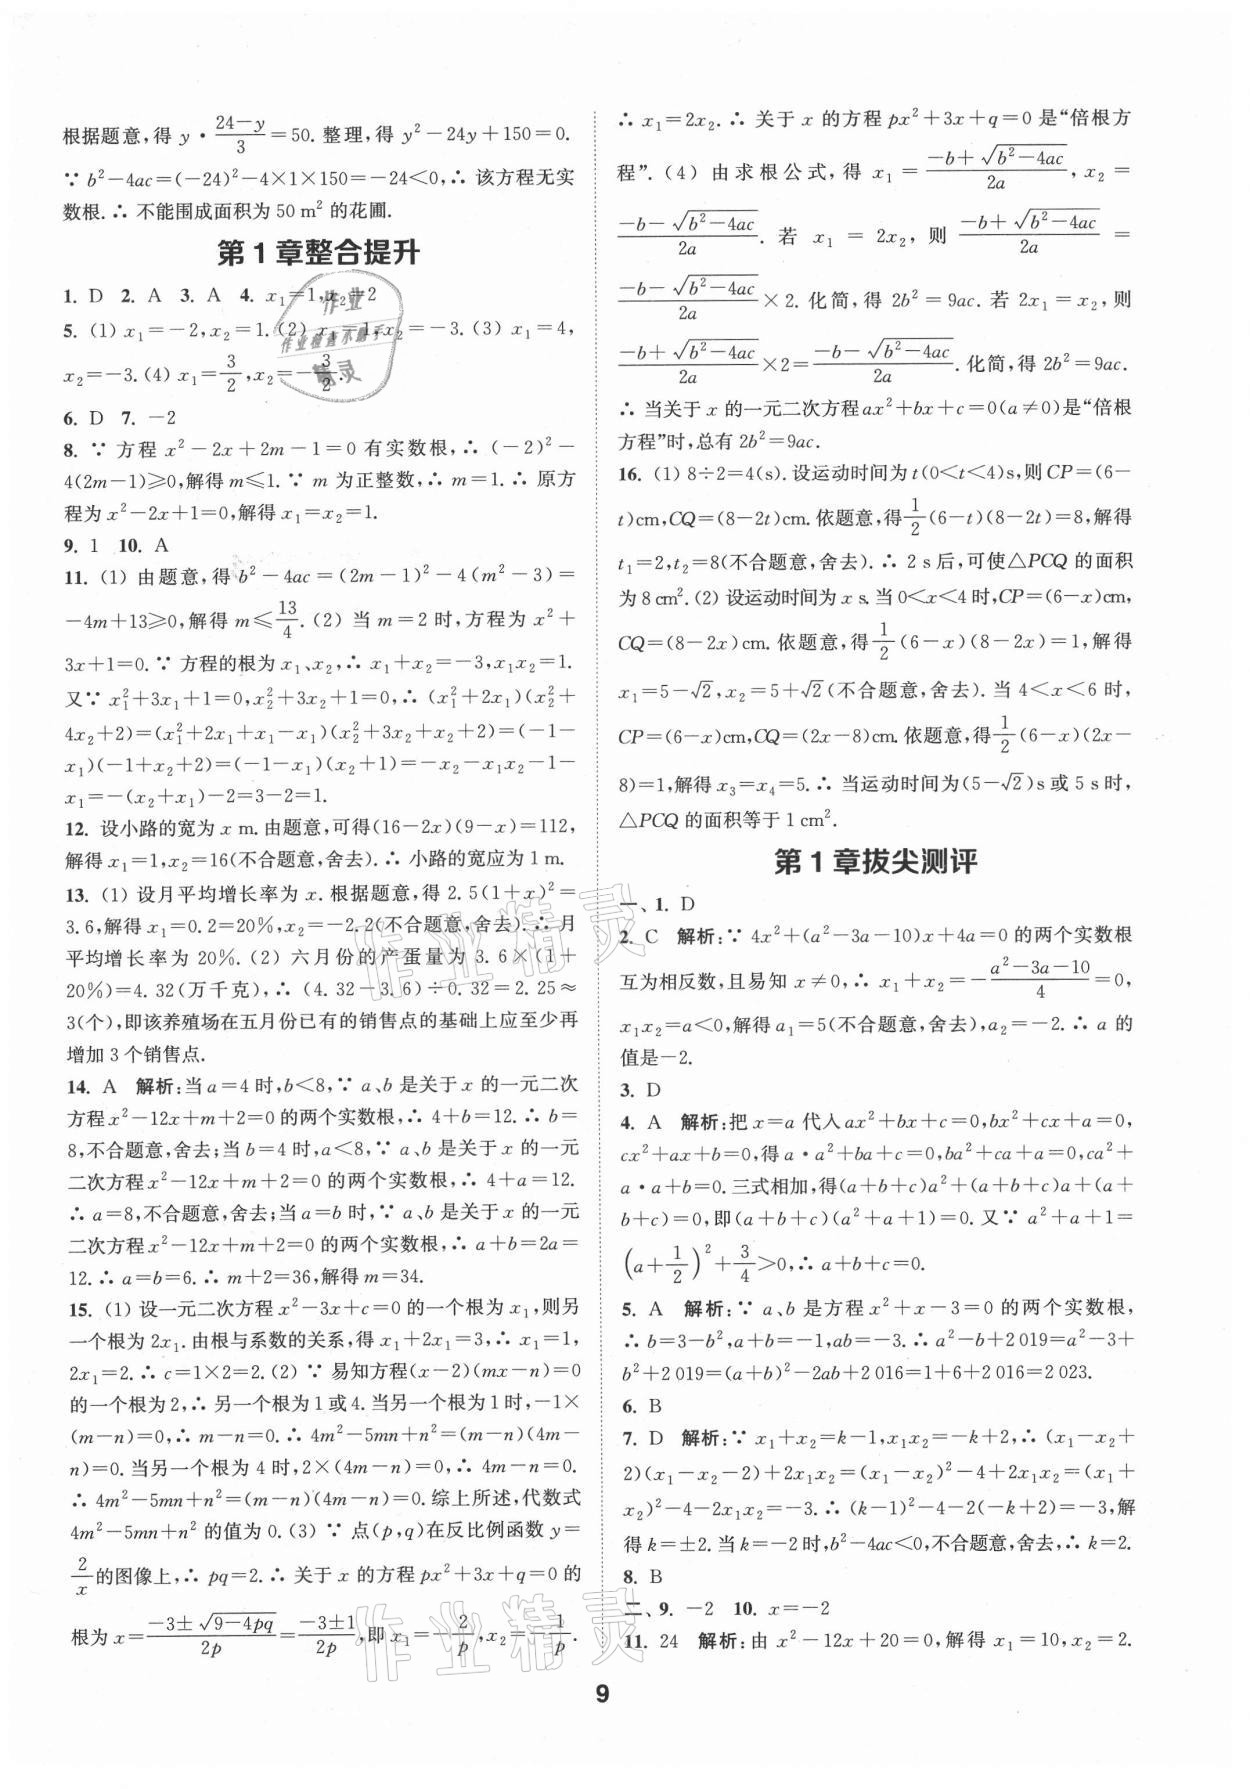 根据题意,得 y·(24-y)/3=50.整理,得 y²-24y+150=0.
∵ b²-4ac=(-24)²-4×1×150=-24<0,∴ 该方程无实
数根.∴ 不能围成面积为 50 m² 的花圃.
第 1 章整合提升
1. D 2. A 3. A 4. x₁=1,x₂=2
5. (1) x₁=-2,x₂=1.(2) x₁=1,x₂=-3.(3) x₁=4,
x₂=-3.(4) x₁=3/2,x₂=-3/2.
6. D 7. -2
8. ∵ 方程 x²-2x+2m-1=0 有实数根,∴ (-2)²-
4(2m-1)≥0,解得 m≤1.∵ m 为正整数,∴ m=1.∴ 原方
程为 x²-2x+1=0,解得 x₁=x₂=1.
9. 1 10. A
11. (1) 由题意,得 b²-4ac=(2m-1)²-4(m²-3)=
-4m+13≥0,解得 m≤13/4.(2) 当 m=2 时,方程为 x²+
3x+1=0.∵ 方程的根为 x₁、x₂,∴ x₁+x₂=-3,x₁x₂=1.
又∵ x₁²+3x₁+1=0,x₂²+3x₂+1=0,∴ (x₁²+2x₁)(x₂²+
4x₂+2)=(x₁²+2x₁+x₁-x₁)(x₂²+3x₂+x₂+2)=(-1-
x₁)(-1+x₂+2)=(-1-x₁)(x₂+1)=-x₂-x₁x₂-1-
x₁=-(x₂+x₁)-2=3-2=1.
12. 设小路的宽为 x m.由题意,可得(16-2x)(9-x)=112,
解得 x₁=1,x₂=16(不合题意,舍去).∴ 小路的宽应为 1 m.
13. (1) 设月平均增长率为 x.根据题意,得 2.5(1+x)²=
3.6,解得 x₁=0.2=20%,x₂=-2.2(不合题意,舍去).∴ 月
平均增长率为 20%.(2) 六月份的产蛋量为 3.6×(1+
20%)=4.32(万千克),∴ (4.32-3.6)÷0.32=2.25≈
3(个),即该养殖场在五月份已有的销售点的基础上应至少再
增加 3 个销售点.
14. A 解析:当 a=4 时,b<8,∵ a、b 是关于 x 的一元二次
方程 x²-12x+m+2=0 的两个实数根,∴ 4+b=12.∴ b=
8,不合题意,舍去;当 b=4 时,a<8,∵ a、b 是关于 x 的一元
二次方程 x²-12x+m+2=0 的两个实数根,∴ 4+a=12.
∴ a=8,不合题意,舍去;当 a=b 时,∵ a、b 是关于 x 的一元
二次方程 x²-12x+m+2=0 的两个实数根,∴ a+b=2a=
12.∴ a=b=6.∴ m+2=36,解得 m=34.
15. (1) 设一元二次方程 x²-3x+c=0 的一个根为 x₁,则另
一个根为 2x₁.由根与系数的关系,得 x₁+2x₁=3,∴ x₁=1,
2x₁=2.∴ c=1×2=2.(2) ∵ 易知方程(x-2)(mx-n)=0
的一个根为 2,∴ 另一个根为 1 或 4.当另一个根为 1 时,-1×
(m-n)=0,∴ m-n=0.∴ 4m²-5mn+n²=(m-n)(4m-
n)=0.当另一个根为 4 时,2×(4m-n)=0,∴ 4m-n=0.
∴ 4m²-5mn+n²=(m-n)(4m-n)=0.综上所述,代数式
4m²-5mn+n² 的值为 0.(3) ∵ 点(p,q)在反比例函数 y=
2/x的图像上,∴ pq=2.∴ 关于 x 的方程 px²+3x+q=0 的
根为 x=(-3±√(9-4pq))/2p=(-3±1)/2p,即 x₁=-2/p,x₂=-1/p.
∴ x₁=2x₂.∴ 关于 x 的方程 px²+3x+q=0 是“倍根方
程”.(4) 由求根公式,得 x₁=(-b+√(b²-4ac))/2a,x₂=
(-b-√(b²-4ac))/2a.若 x₁=2x₂,则 (-b+√(b²-4ac))/2a=
(-b-√(b²-4ac))/2a×2.化简,得 2b²=9ac.若 2x₁=x₂,则
(-b+√(b²-4ac))/2a×2=(-b-√(b²-4ac))/2a.化简,得 2b²=9ac.
∴ 当关于 x 的一元二次方程ax²+bx+c=0(a≠0)是“倍根
方程”时,总有 2b²=9ac.
16. (1) 8÷2=4(s).设运动时间为 t(0<t<4)s,则 CP=(6-
t)cm,CQ=(8-2t)cm.依题意,得1/2(6-t)(8-2t)=8,解得
t₁=2,t₂=8(不合题意,舍去).∴ 2 s 后,可使△PCQ 的面积
为 8 cm².(2) 设运动时间为 x s.当 0<x<4 时,CP=(6-x)cm,
CQ=(8-2x)cm.依题意,得1/2(6-x)(8-2x)=1,解得
x₁=5-√2,x₂=5+√2(不合题意,舍去).当 4<x<6 时,
CP=(6-x)cm,CQ=(2x-8)cm.依题意,得1/2(6-x)(2x-
8)=1,解得 x₃=x₄=5.∴ 当运动时间为(5-√2)s 或 5 s 时,
△PCQ 的面积等于 1 cm².
第 1 章拔尖测评
一、1. D
2. C 解析:∵ 4x²+(a²-3a-10)x+4a=0 的两个实数根
互为相反数,且易知 x≠0,∴ x₁+x₂=-(a²-3a-10)/4=0,
x₁x₂=a<0,解得 a₁=5(不合题意,舍去),a₂=-2.∴ a 的
值是-2.
3. D
4. A 解析:把 x=a 代入 ax²+bx+c=0,bx²+cx+a=0,
cx²+ax+b=0,得 a·a²+ba+c=0,ba²+ca+a=0,ca²+
a·a+b=0.三式相加,得(a+b+c)a²+(a+b+c)a+(a+
b+c)=0,即(a+b+c)(a²+a+1)=0.又∵ a²+a+1=
(a+1/2)²+3/4>0,∴ a+b+c=0.
5. A 解析:∵ a、b 是方程 x²+x-3=0 的两个实数根,
∴ b=3-b²,a+b=-1,ab=-3.∴ a²-b+2 019=a²-3+
b²+2 019=(a+b)²-2ab+2 016=1+6+2 016=2 023.
6. B
7. D 解析:∵ x₁+x₂=k-1,x₁x₂=-k+2,∴ (x₁-x₂+
2)(x₁-x₂-2)+2x₁x₂=(x₁-x₂)²-4+2x₁x₂=(x₁+
x₂)²-4-2x₁x₂=-3.∴ (k-1)²-4-2(-k+2)=-3,解
得 k=±2.当 k=-2 时,b²-4ac<0,不合题意,舍去,∴ k=2.
8. B
二、9. -2 10. x=-2
11. 24 解析:由 x²-12x+20=0,解得 x₁=10,x₂=2.
9
作业
作业检查小助手
精灵
作业精灵
作业精灵